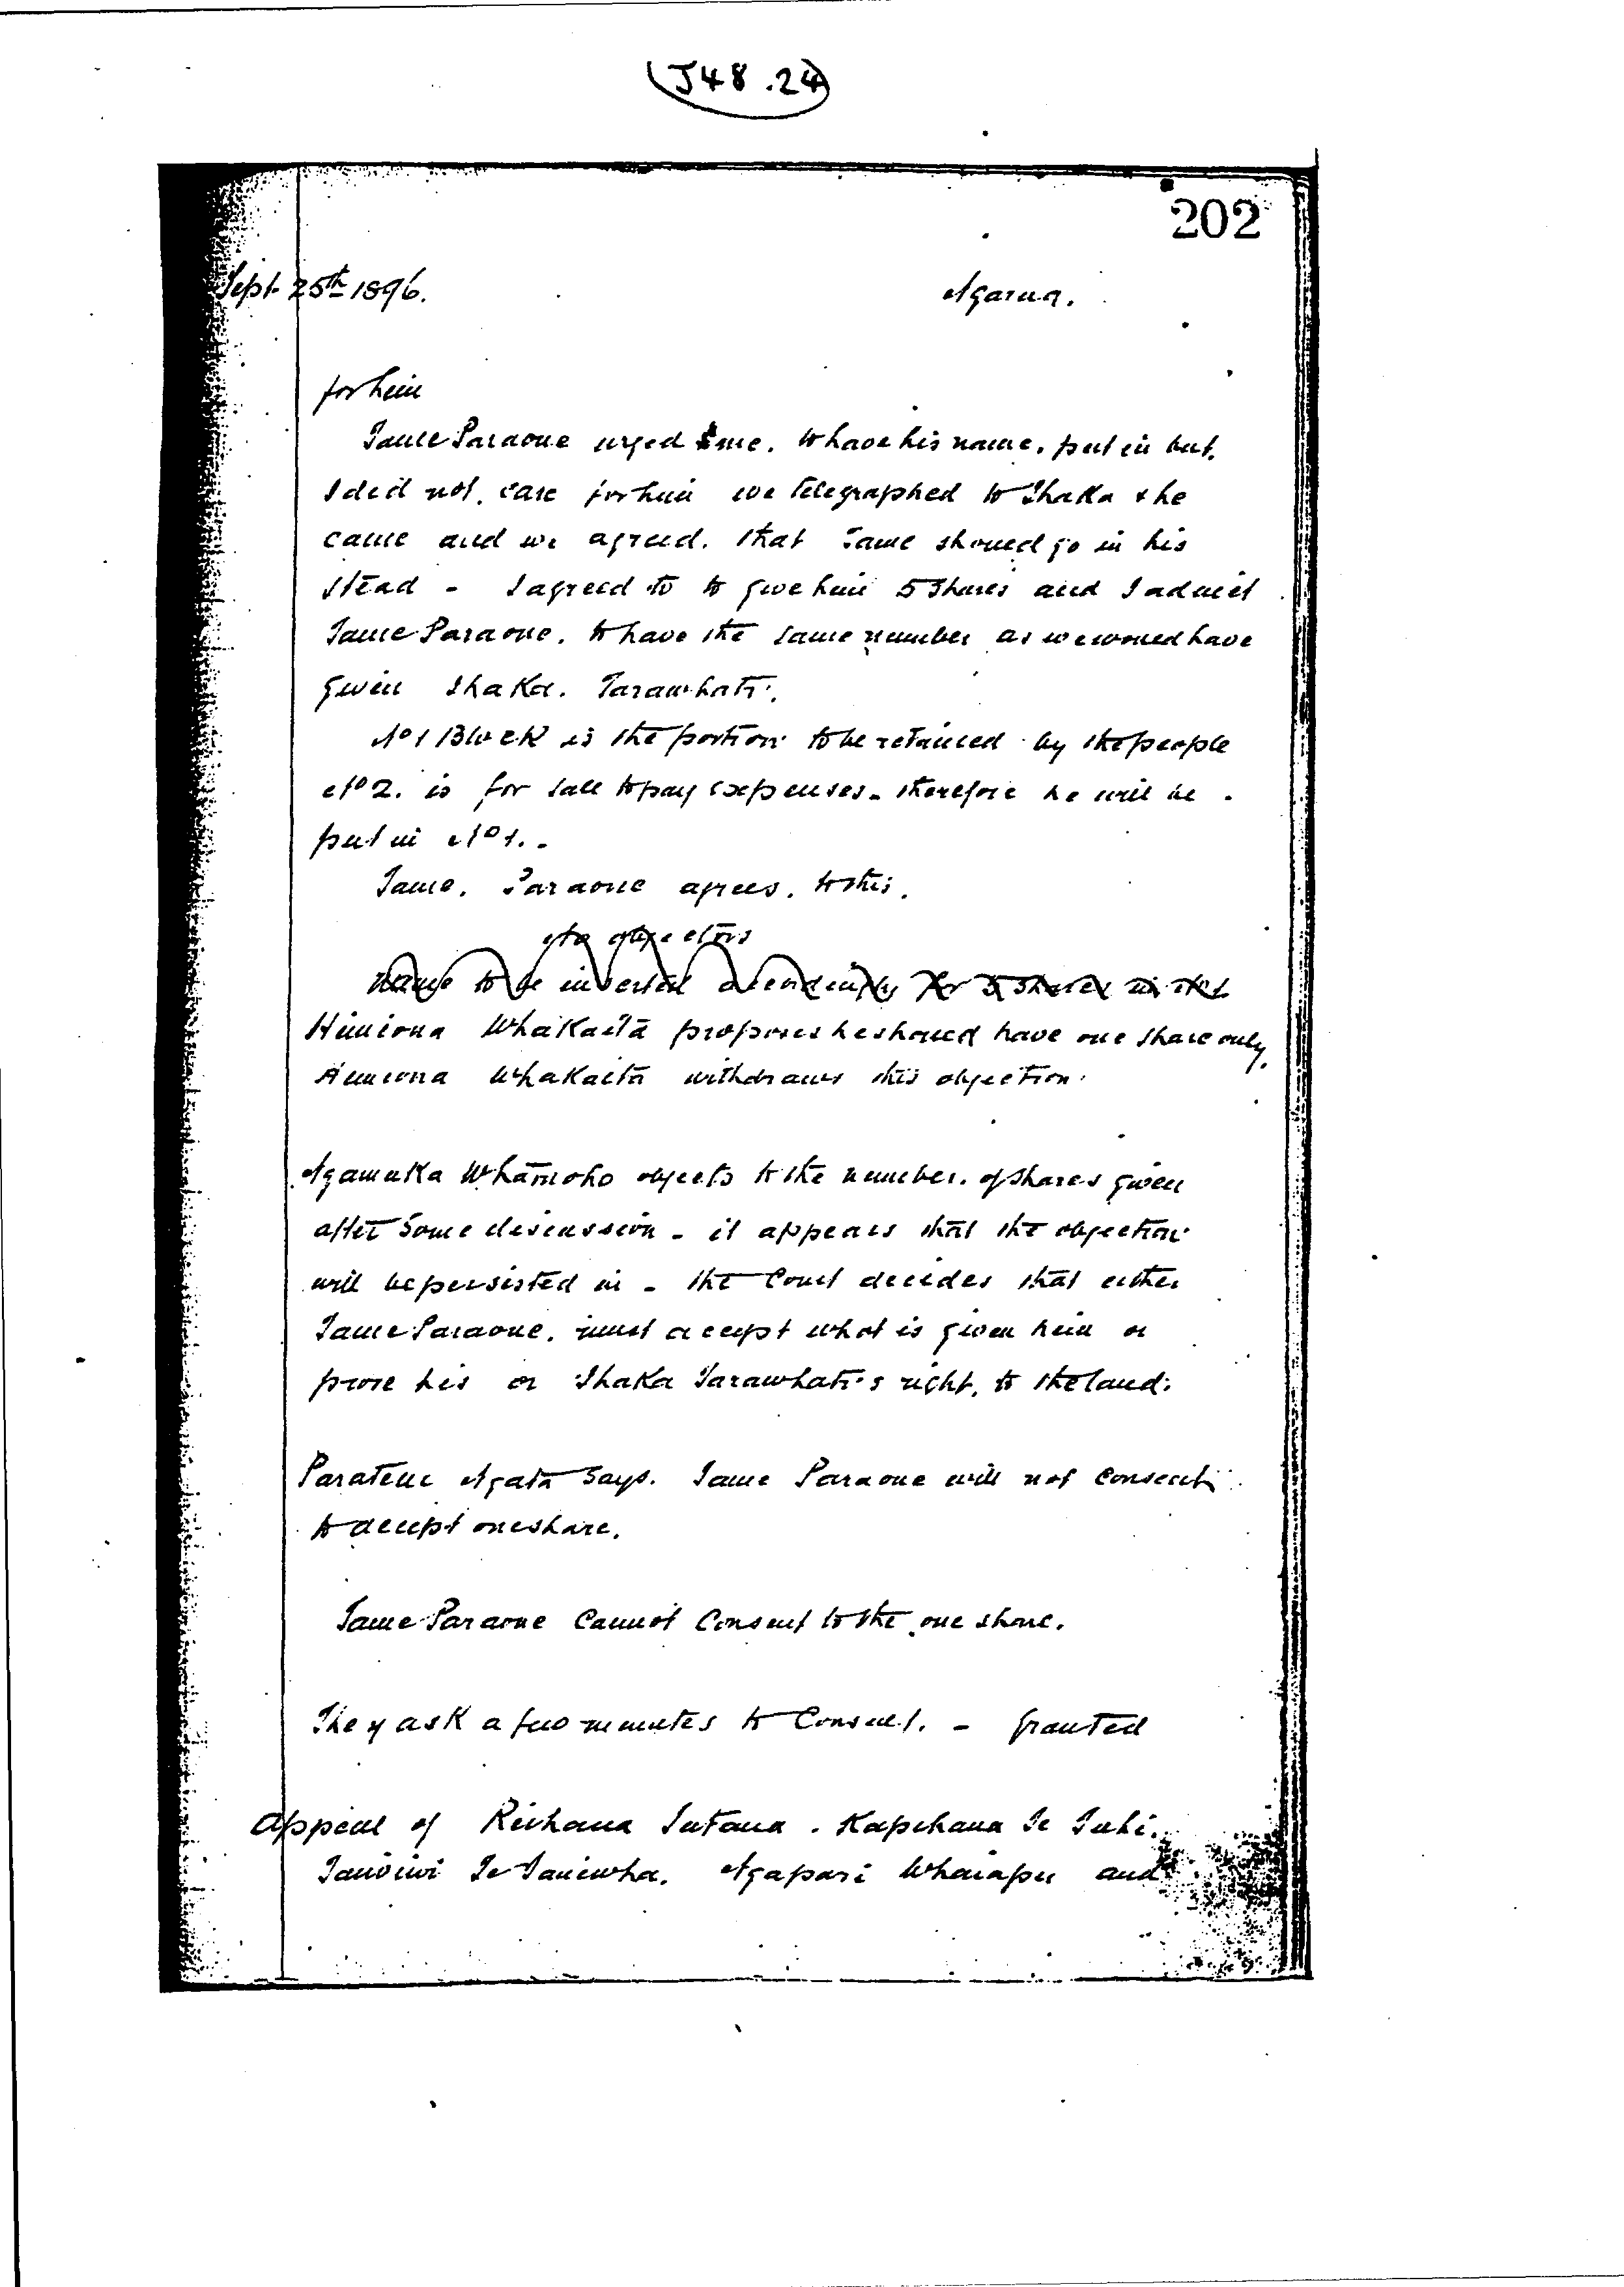 J48.24
202
Sept. 25th 1896.
Ngarua.
for him
Tame Paraone urged me. to have his name. put in but.
I did not. care for him we telegraphed to Ihaka & he
came and we agreed. that Tame should go in his
stead - I agreed to to give him 5 shares and I admit
Tame Paraone. to have the same number as we would have
given Ihaka. Tarawhati.
No 1 Block is the portion to be retained by the people
No 2. is for sale to pay expenses - therefore he will be
put in No 1. -
Tame. Paraone agrees. to this.
No objectors
Name to be inserted accordingly for 5 shares in No 1
Himiona Whakaita proposes he should have one share only.
Himiona Whakaita withdraws this objection.
Ngamuka Whatiroho objects to the number. of shares given
after some discussion - it appears that the objection
will be persisted in - the Court decides that either
Tame Paraone. must accept what is given him or
prove his or Ihaka Tarawhati's right. to the land.
Paratene Ngata says. Tame Paraone will not consent
to accept one share.
Tame Paraone Cannot Consent to the one share.
They ask a few minutes to Consult. - granted
Appeal of Reihana Tutaua. Kapihana Te Tuhi.
Taniwiwi Te Taniwha. Ngapari Whaiapu and